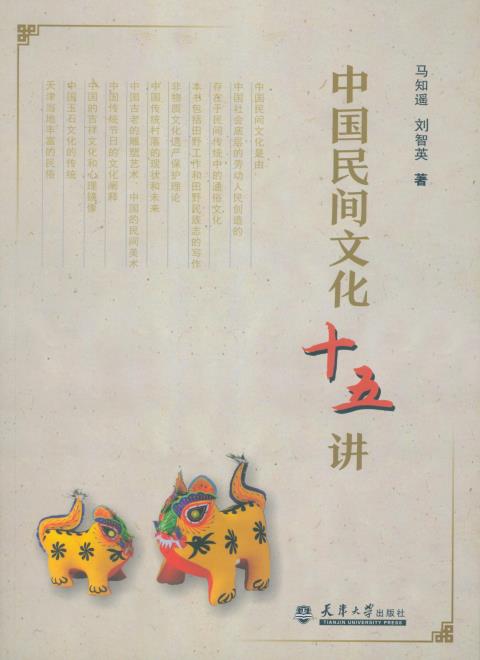 马知遥 刘智英 著
中国民间文化十五讲
中国民间文化是由
中国社会底层的劳动人民创造的
存在于民间传统中的通俗文化
本书包括田野工作和田野民族志的写作
非物质文化遗产保护理论
中国传统村落的现状和未来
中国古老的雕塑艺术、中国的民间美术
中国传统节日的文化阐释
中国的吉祥文化和心理镜像
中国玉石文化的传统
天津当地丰富的民俗
天津大学出版社
TIANJIN UNIVERSITY PRESS